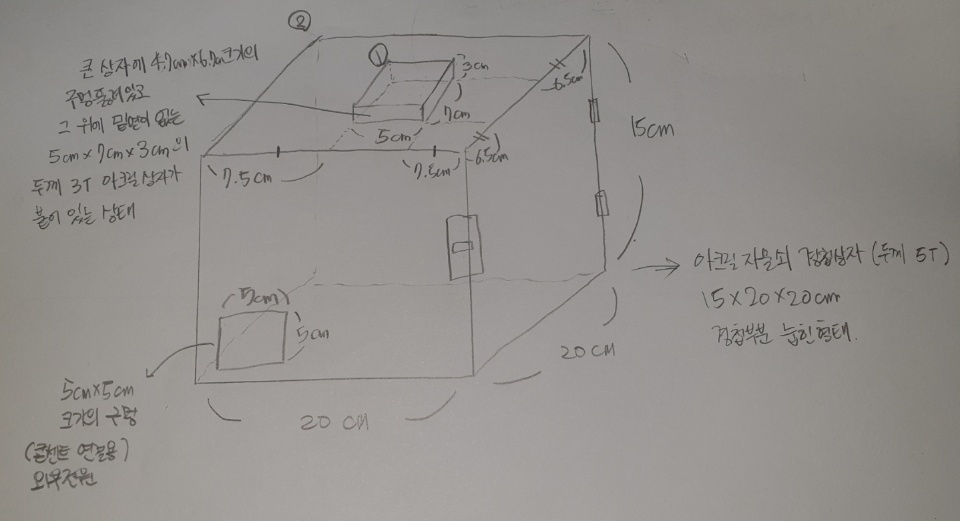 ②
①
큰 상자에 4.7cm×6.7cm크기의
구멍 뚫려있고
그 위에 밑면이 없는
5cm×7cm×3cm의
두께 3T 아크릴 상자가
붙어 있는 상태
3cm
7cm
5cm
6.5cm
6.5cm
7.5cm
7.5cm
15cm
아크릴 자물쇠 경첩상자 (두께 5T)
15×20×20cm
경첩부분 눕힌형태.
(5cm)
5cm
20CM
20CM
5cm×5cm
크기의 구멍
(콘센트 연결용)
외부전원